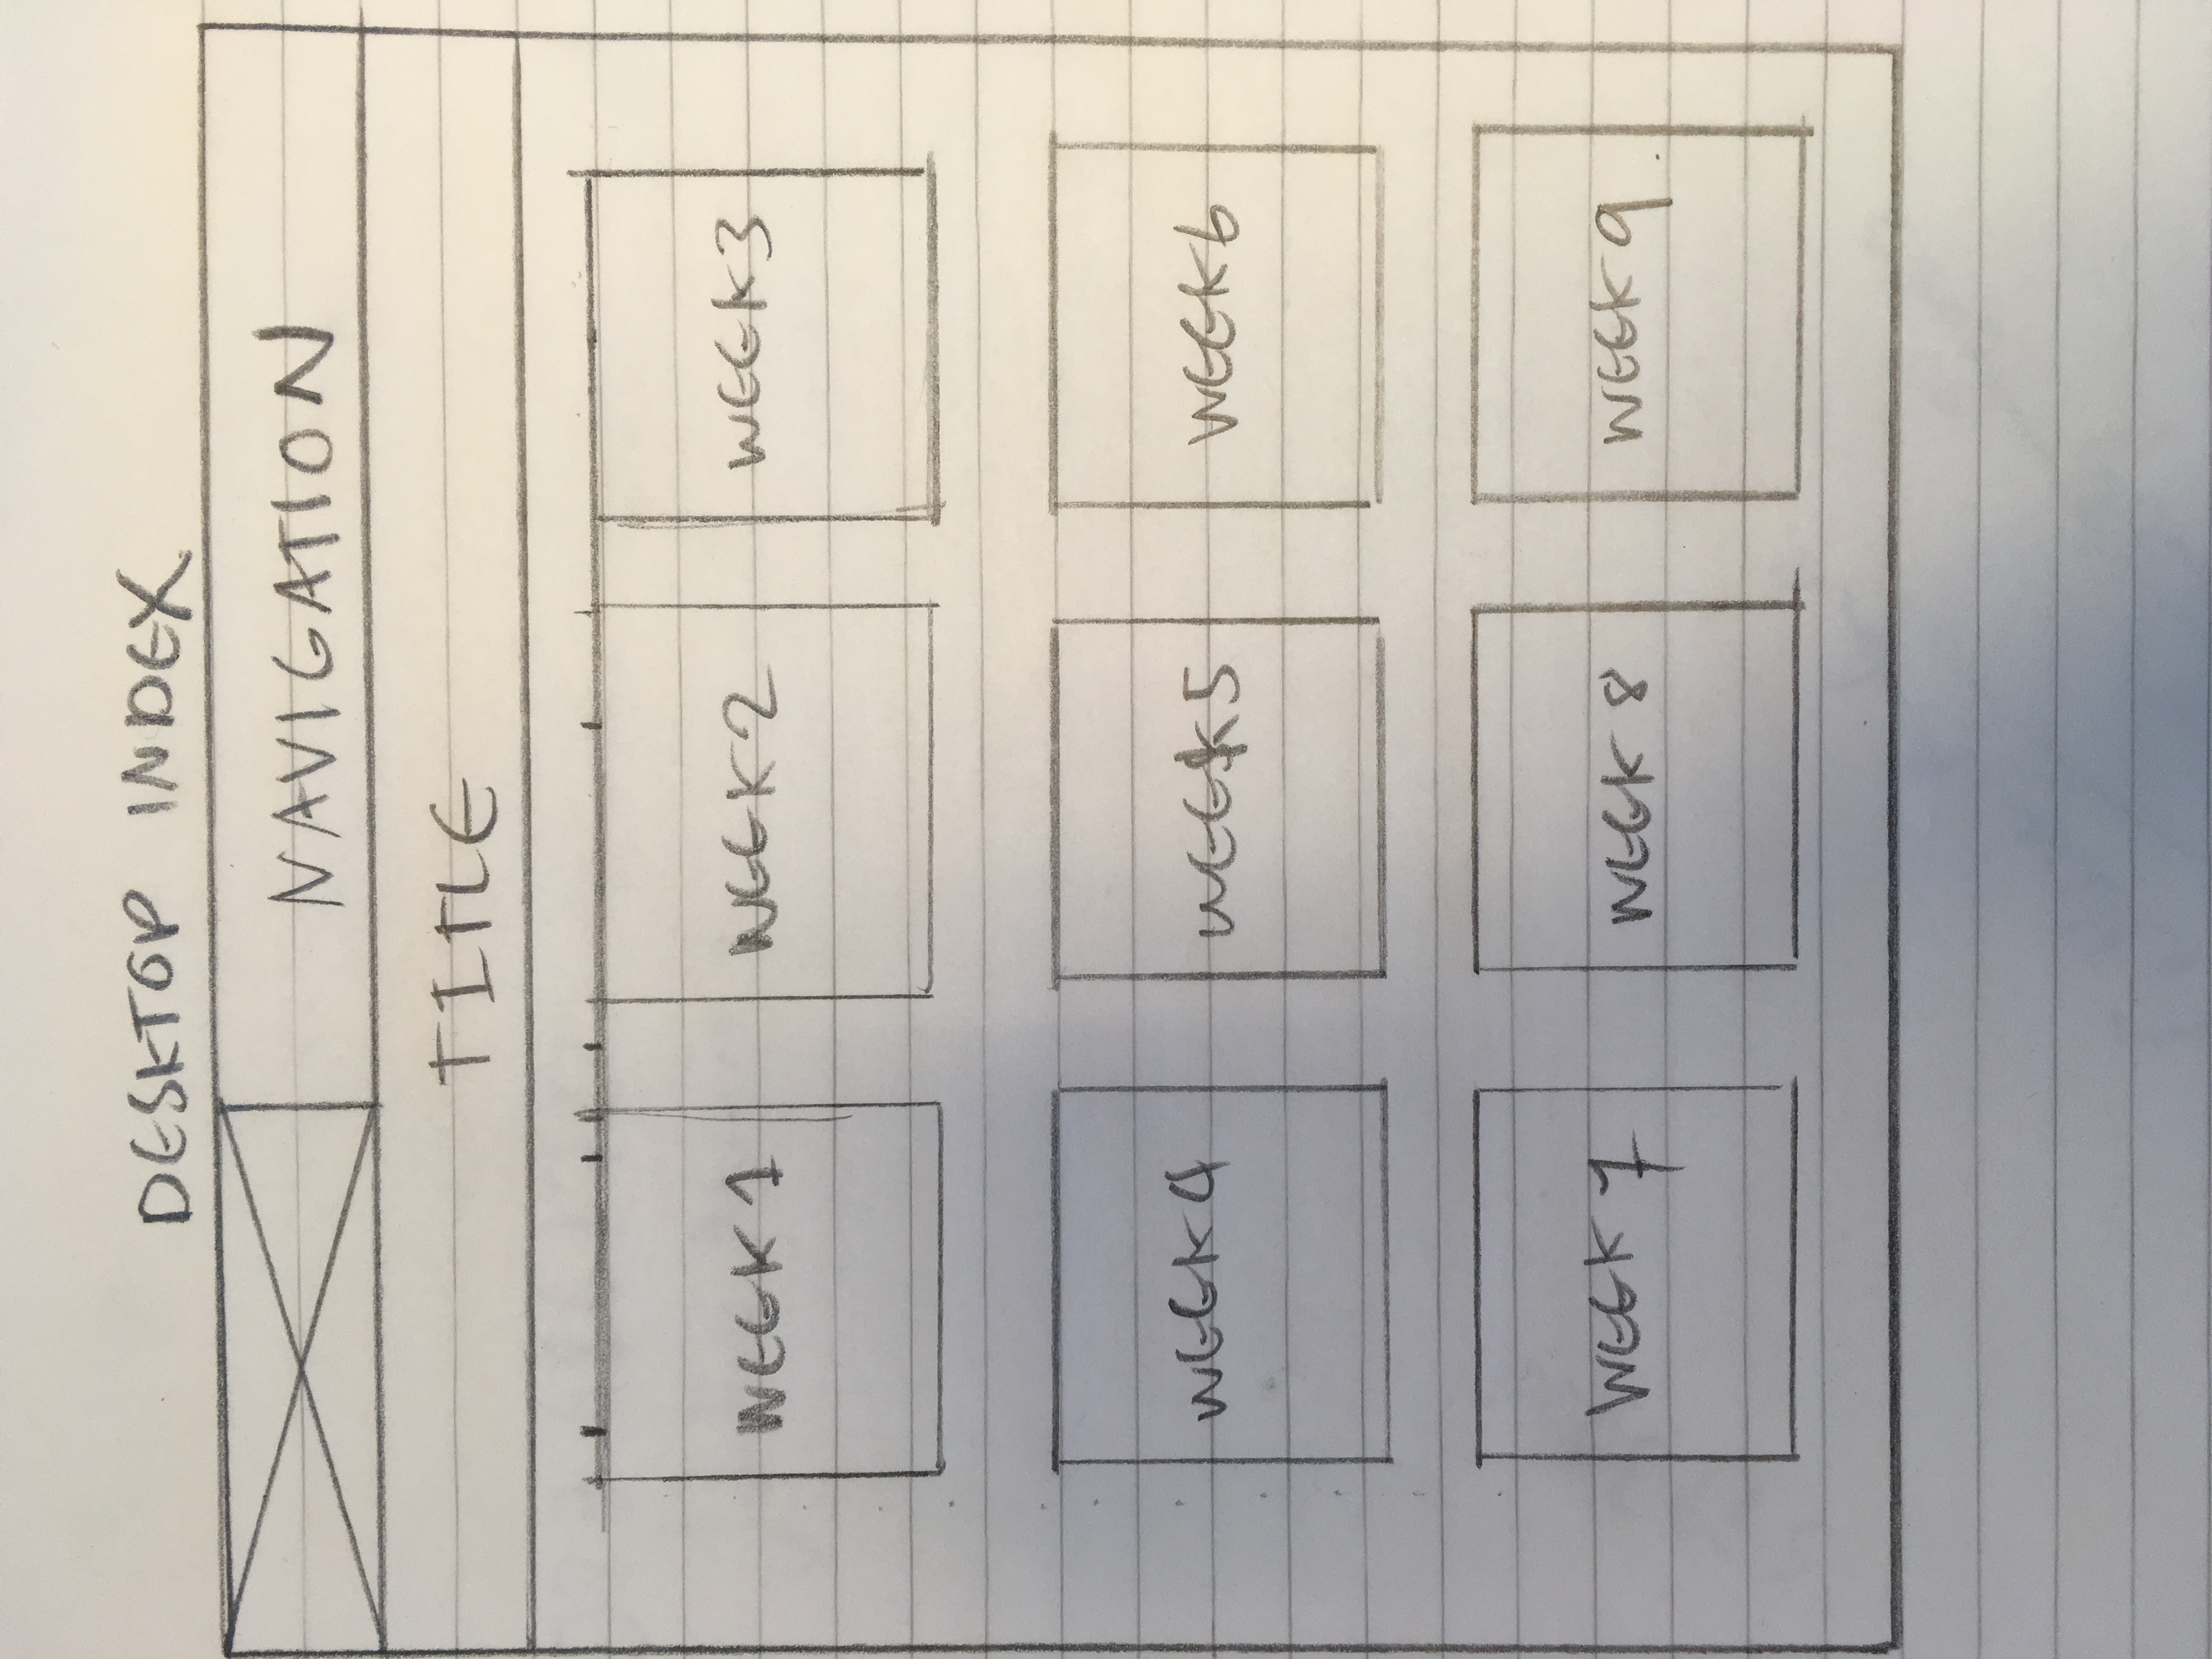 DESKTOP INDEX
NAVIGATION
TITLE
WEEK 1 WEEK 2 WEEK 3
WEEK 4 WEEK 5 WEEK 6
WEEK 7 WEEK 8 WEEK 9